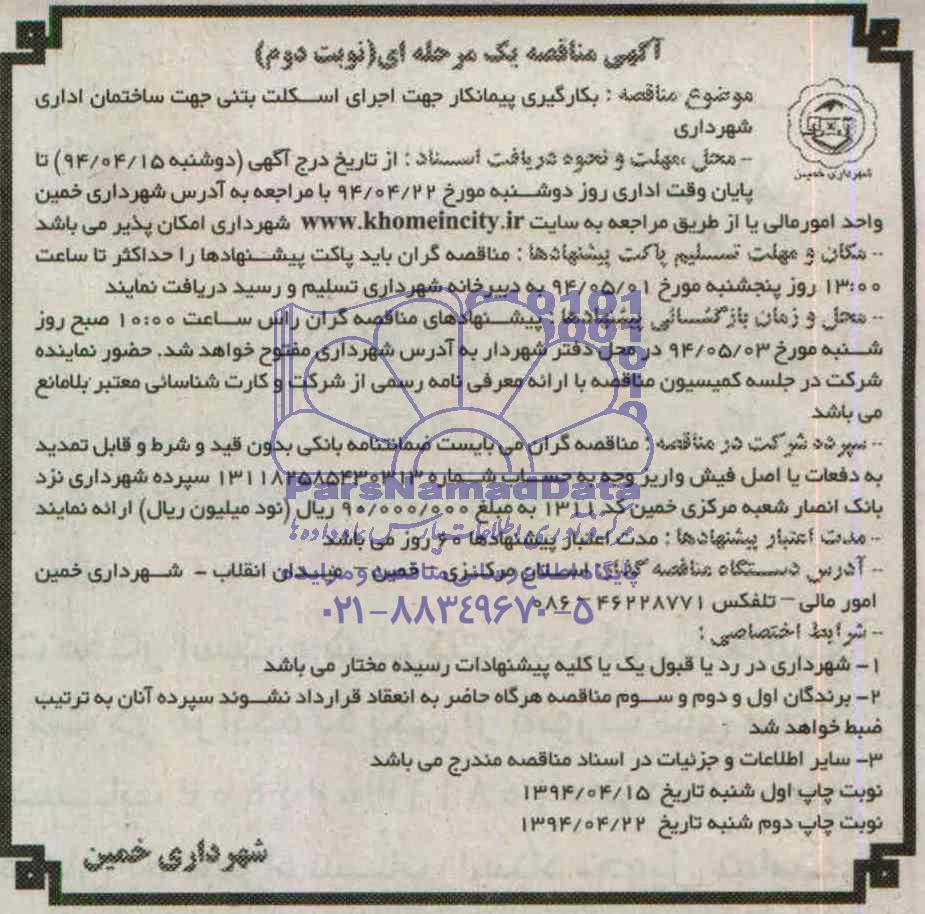 آگهی مناقصه یک مرحله ای(نوبت دوم)
شهرداری خمین
موضوع مناقصه : بکارگیری پیمانکار جهت اجرای اسکلت بتنی جهت ساختمان اداری
شهرداری
- محل ،مهلت و نحوه دریافت اسناد : از تاریخ درج آگهی (دوشنبه ۹۴/۰۴/۱۵) تا
پایان وقت اداری روز دوشنبه مورخ ۹۴/۰۴/۲۲ با مراجعه به آدرس شهرداری خمین
واحد امورمالی یا از طریق مراجعه به سایت www.khomeincity.ir شهرداری امکان پذیر می باشد
- مکان و مهلت تسلیم پاکت پیشنهادها : مناقصه گران باید پاکت پیشنهادها را حداکثر تا ساعت
۱۳:۰۰ روز پنجشنبه مورخ ۹۴/۰۵/۰۱ به دبیرخانه شهرداری تسلیم و رسید دریافت نمایند
- محل و زمان بازگشائی پیشنهادها : پیشنهادهای مناقصه گران راس ساعت ۱۰:۰۰ صبح روز
شنبه مورخ ۹۴/۰۵/۰۳ در محل دفتر شهردار به آدرس شهرداری مفتوح خواهد شد. حضور نماینده
شرکت در جلسه کمیسیون مناقصه با ارائه معرفی نامه رسمی از شرکت و کارت شناسائی معتبر بلامانع
می باشد
- سپرده شرکت در مناقصه : مناقصه گران می بایست ضمانتنامه بانکی بدون قید و شرط و قابل تمدید
به دفعات یا اصل فیش واریز وجه به حساب شماره ۱۳۱۱۸۲۵۸۵۴۳۰۳۱۳ سپرده شهرداری نزد
ParsNamadData
بانک انصار شعبه مرکزی خمین کد ۱۳۱۱ به مبلغ ۹۰/۰۰۰/۰۰۰ ریال (نود میلیون ریال) ارائه نمایند
- مدت اعتبار پیشنهادها : مدت اعتبار پیشنهادها ۶۰ روز می باشد
- آدرس دستگاه مناقصه گذار: استان مرکزی - خمین - میدان انقلاب - شهرداری خمین
پایگاه اطلاع رسانی مناقصه و مزایده
امور مالی – تلفکس ۴۶۲۲۸۷۷۱-۰۸۶
۰۲۱-۸۸۳۴۹۶۷۰-۵
- شرایط اختصاصی :
۱- شهرداری در رد یا قبول یک یا کلیه پیشنهادات رسیده مختار می باشد
۲- برندگان اول و دوم و سوم مناقصه هرگاه حاضر به انعقاد قرارداد نشوند سپرده آنان به ترتیب
ضبط خواهد شد
۳- سایر اطلاعات و جزئیات در اسناد مناقصه مندرج می باشد
نوبت چاپ اول شنبه تاریخ ۱۳۹۴/۰۴/۱۵
نوبت چاپ دوم شنبه تاریخ ۱۳۹۴/۰۴/۲۲
شهرداری خمین